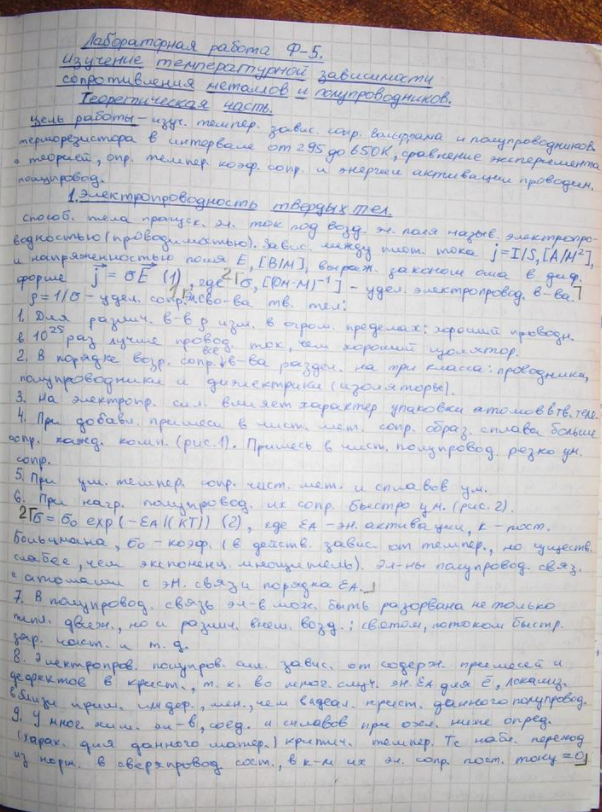 Лабораторная работа Ф-5.
Изучение температурной зависимости
сопротивления металлов и полупроводников.
Теоретическая часть.
Цель работы - изуч. темпер. завис. сопр. вольфрама и полупроводников.
терморезистора в интервале от 295 до 650К, сравнение эксперимента
с теорией, опр. темпер. коэф. сопр. и энергии активации проводим.
полупровод.
1. Электропроводность твердых тел.
Способ. тела пропуск. эл. ток под возд. эл. поля назыв. электропро-
водностью (проводимостью). Завис. между плот. тока j=I/S, [А/м²],
и напряженностью поля E, [В/м], выраж. законом Ома в диф.
форме j = σE (1), где σ, [(Ом·м)⁻¹] - удел. электропровод. в-ва.
ρ=1/σ - удел. сопр. Св-ва тв. тел:
1. Для различ. в-в ρ изм. в огром. пределах: хороший проводн.
в 10²⁵ раз лучше провод. ток, чем хороший изолятор.
2. В порядке возр. сопр. все в-ва раздел. на три класса: проводники,
полупроводники и диэлектрики (изоляторы).
3. На электропр. сил. влияет характер упаковки атомов в тв. теле.
4. При добавл. примеси в чист. мет. сопр. образ. сплава больше
сопр. кажд. комп. (рис. 1). Примесь в чист. полупровод. резко ум.
сопр.
5. При ум. темпер. сопр. чист. мет. и сплавов ум.
6. При нагр. полупровод. их сопр. быстро ум. (рис. 2).
σ = σ₀ exp (-EА/(КТ)) (2), где EА - эн. активации, к - пост.
Больцмана, σ₀ - коэф. (в действ. завис. от темпер., но существ.
слабее, чем экспоненц. множитель). Эл-ны полупровод. связ.
с атомами с эн. связи порядка EА.
7. В полупровод. связь эл-в мож. быть разорвана не только
тепл. движ., но и различ. внеш. возд.: светом, потоком быстр.
зар. част. и т. д.
8. Электропров. полупров. сил. завис. от содерж. примесей и
дефектов в крист., т. к. во мног. случ. эн. EА для ē, локализ.
вблизи прим. или деф., мен., чем в идеал. крист. данного полупровод.
9. У мног. хим. эл-в, соед. и сплавов при охл. ниже опред.
(харак. для данного матер.) критич. темпер. Тс набл. переход
из норм. в сверхпровод. сост., в к-м их эл. сопр. пост. току =0.